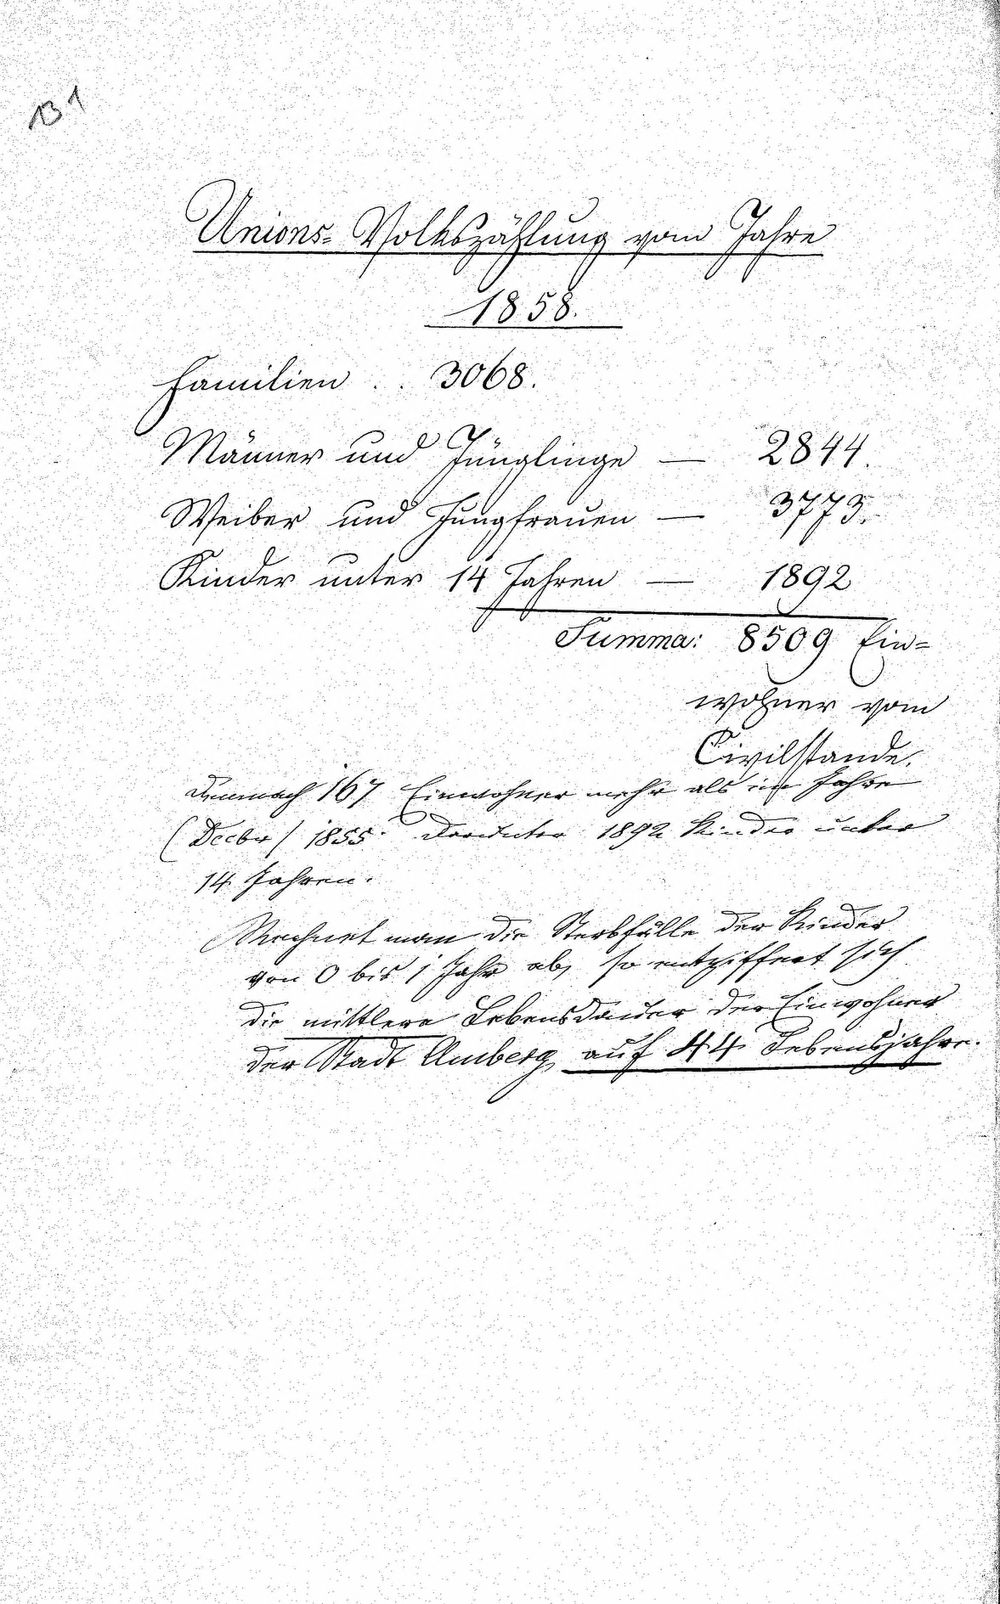 131
Unions- Volkszählung vom Jahre
1858.
Familien . . 3068.
Männer und Jünglinge — 2844.
Weiber und Jungfrauen — 3773.
Kinder unter 14 Jahren — 1892
Summa: 8509 Ein=
wohner vom
Civilstande.
Demnach 167 Einwohner mehr als im Jahre
(Decbr) 1855. Darunter 1892 Kinder unter
14 Jahren.
Rechnet man die Sterbfälle der Kinder
von 0 bis 1 Jahr ab, so entziffert sich
die mittlere Lebensdauer der Einwohner
der Stadt Amberg auf 44 Lebensjahre.